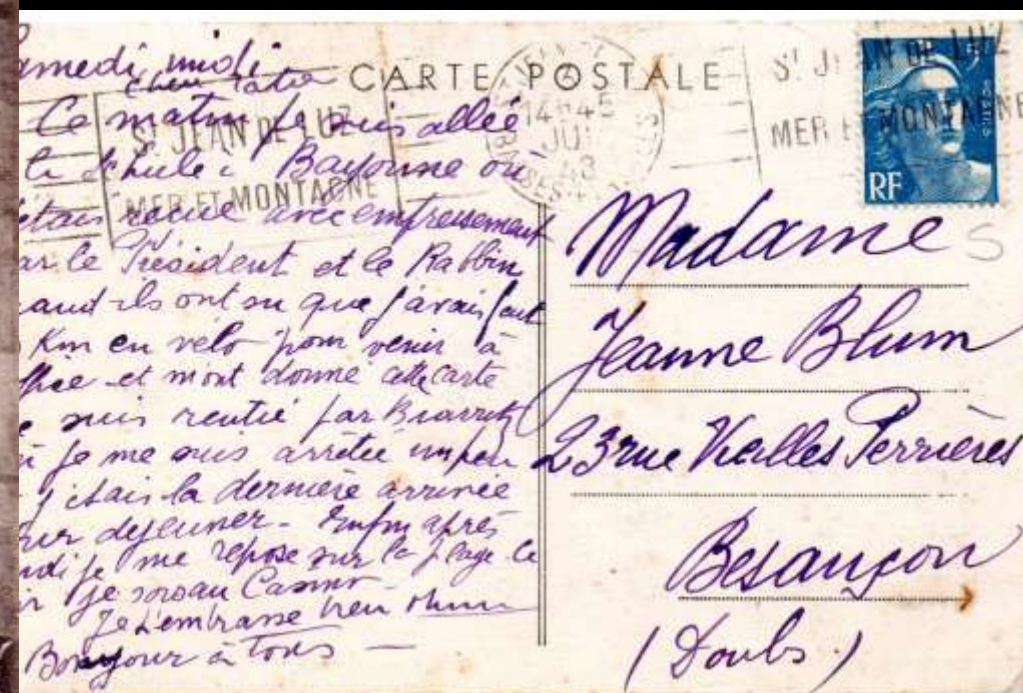 CARTE POSTALE
St JEAN DE LUZ
MER ET MONTAGNE
14H45
JUI
48
St JEAN DE LUZ
MER ET MONTAGNE
RF
amedi midi
Ce matin je suis allée
Bayonne où
étais reçue avec empressement
ar le Président et le Rabbin
uand ils ont su que j'avais fait
Km en vélo pour venir à
ffice et m'ont donné cette carte
e suis rentré par Biarritz
je me suis arrêtée un peu
j'étais la dernière arrivée
déjeuner - Enfin après
midi je me repose sur la plage ce
je Casino
Je t'embrasse bien
Bonjour à tous —
Madame
Jeanne Blum
23 rue Vieilles Perrières
Besançon
(Doubs)
S